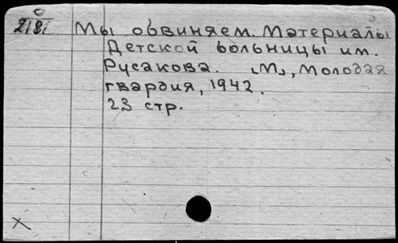 Мы обвиняем. Материалы
Детской больницы им.
Русакова. [М], Молодая
гвардия, 1942.
23 стр.